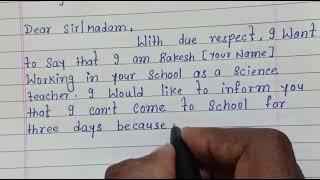 Dear Sir/Madam,
With due respect, I Want
to Say that I am Rakesh [Your Name]
Working in your School as a Science
teacher. I Would like to inform you
that I can't Come to School for
three days because